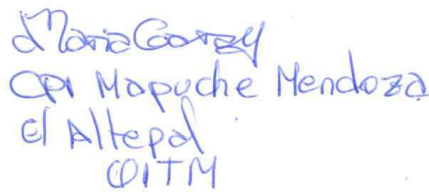 Maria
CPI Mapuche Mendoza
El Altepal
OITM